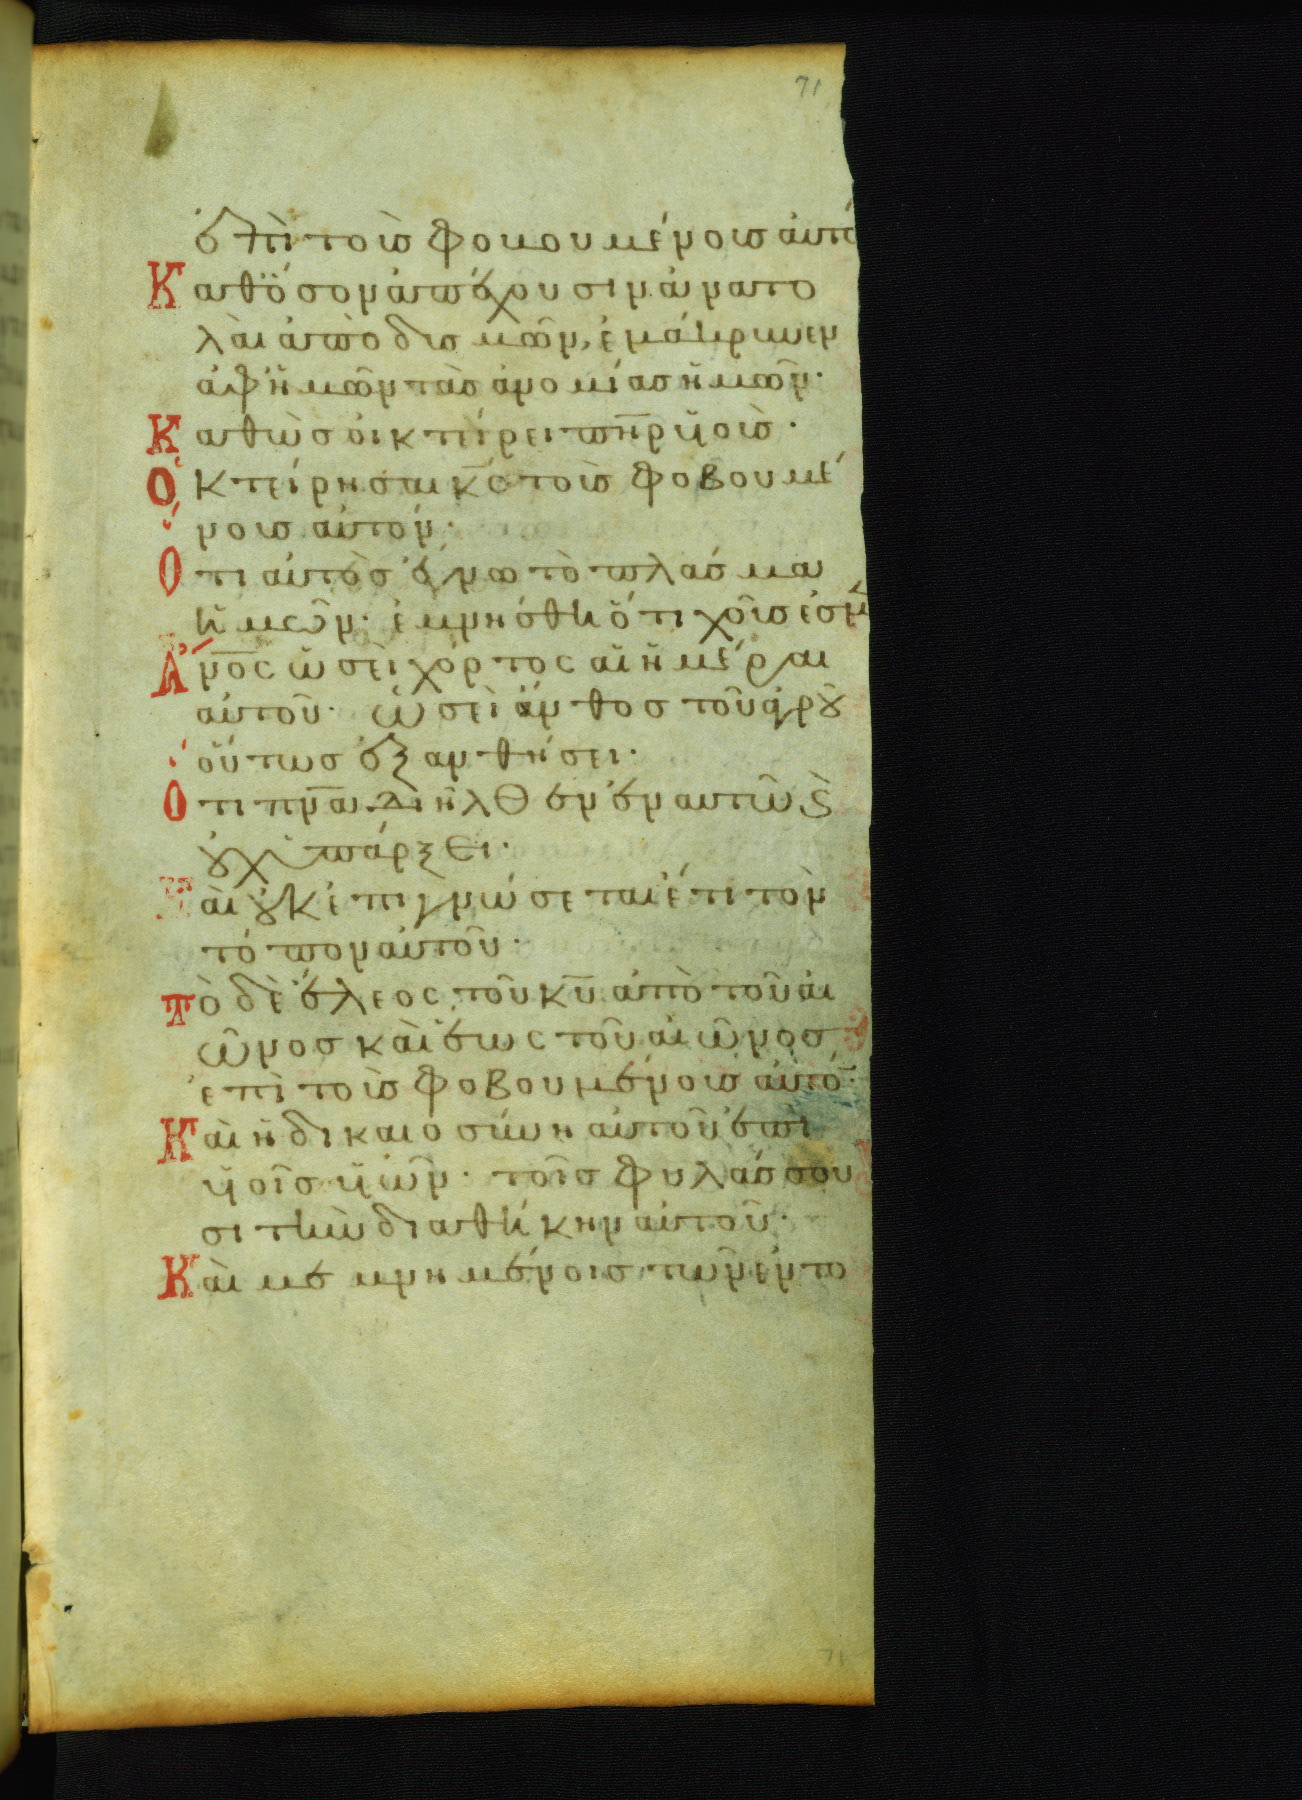 71
ἐπὶ τοῖσ φοβουμένοισ αὐτό
Καθ ὅσον ἀπέχουσιν ἀνατο
λαὶ ἀπὸ δισμῶν, ἐμάκρυνεν
ἀφ ἡμῶν τὰσ ἀνομίασ ἡμῶν·
Καθὼσ οἰκτείρει πη̅ρ υἱοῖσ·
Ὀκτείρησαι κ̅ς τοῖσ φοβουμέ
νοισ αὐτόν·
Ὅτι αὐτὸσ ἔγνω τὸ πλάσμα
ἡμῶν· ἐμνήσθη ὅτι χοῖσ ἐσμὲ
Ἄν̅ος ὡσεὶ χόρτος αἱ ἡμέραι
αὐτοῦ· ὡσεὶ ἄνθοσ τοῦ ἀγροῦ
οὕτωσ ἐξανθήσει·
Ὅτι πν̅α διῆλθεν ἐν αυτῶ κ(αὶ)
οὐχ ὑπάρξει·
Καὶ οὐκ ἐπιγνώσεται ἔτι τὸν
τόπον αὐτοῦ·
Τὸ δὲ ἔλεος τοῦ κ̅υ ἀπὸ τοῦ αἰ
ῶνοσ καὶ ἕως τοῦ αἰῶνοσ
ἐπὶ τοῖσ φοβουμένοισ αὐτό·
Καὶ ἡ δικαιοσύνη αὐτοῦ ἐπι
υἱοῖσ υἱῶν· τοῖσ φυλάσσου
σι τὴν διαθήκην αὐτοῦ·
Καὶ μεμνημένοισ τῶν ἐντο
71